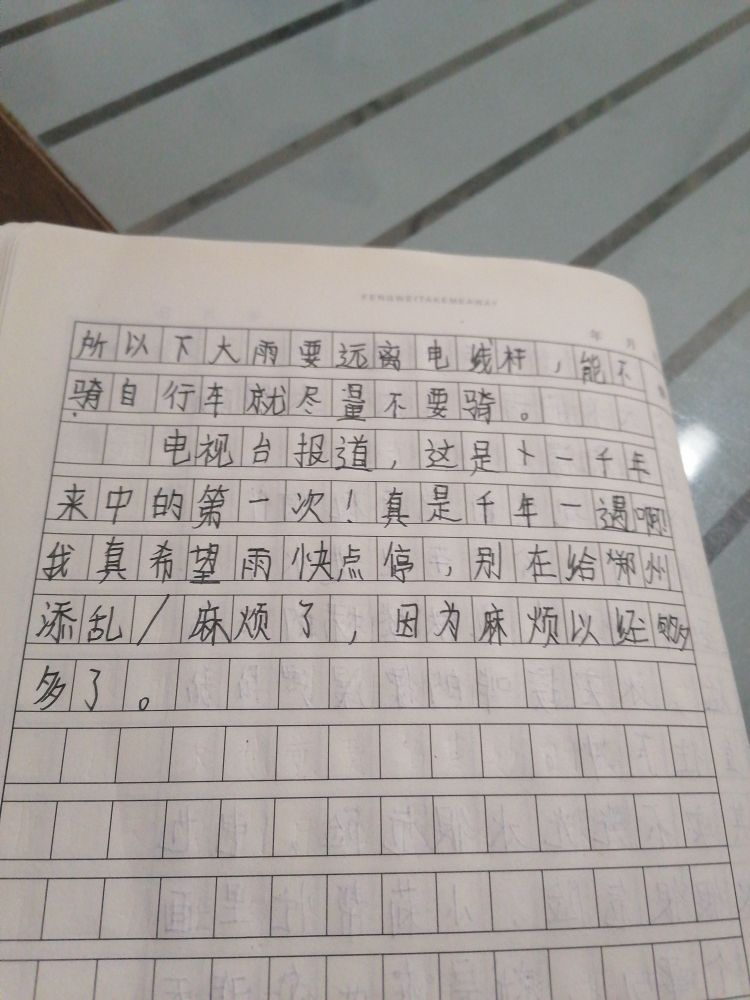 年 月
所以下大雨要远离电线杆，能不
骑自行车就尽量不要骑。
电视台报道，这是十一千年
来中的第一次！真是千年一遇啊！
我真希望雨快点停，别在给郑州
添乱/麻烦了，因为麻烦以经够多
多了。